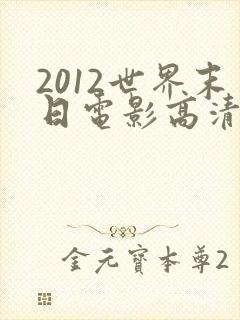 2012世界末
日電影高清
金元寶本尊2